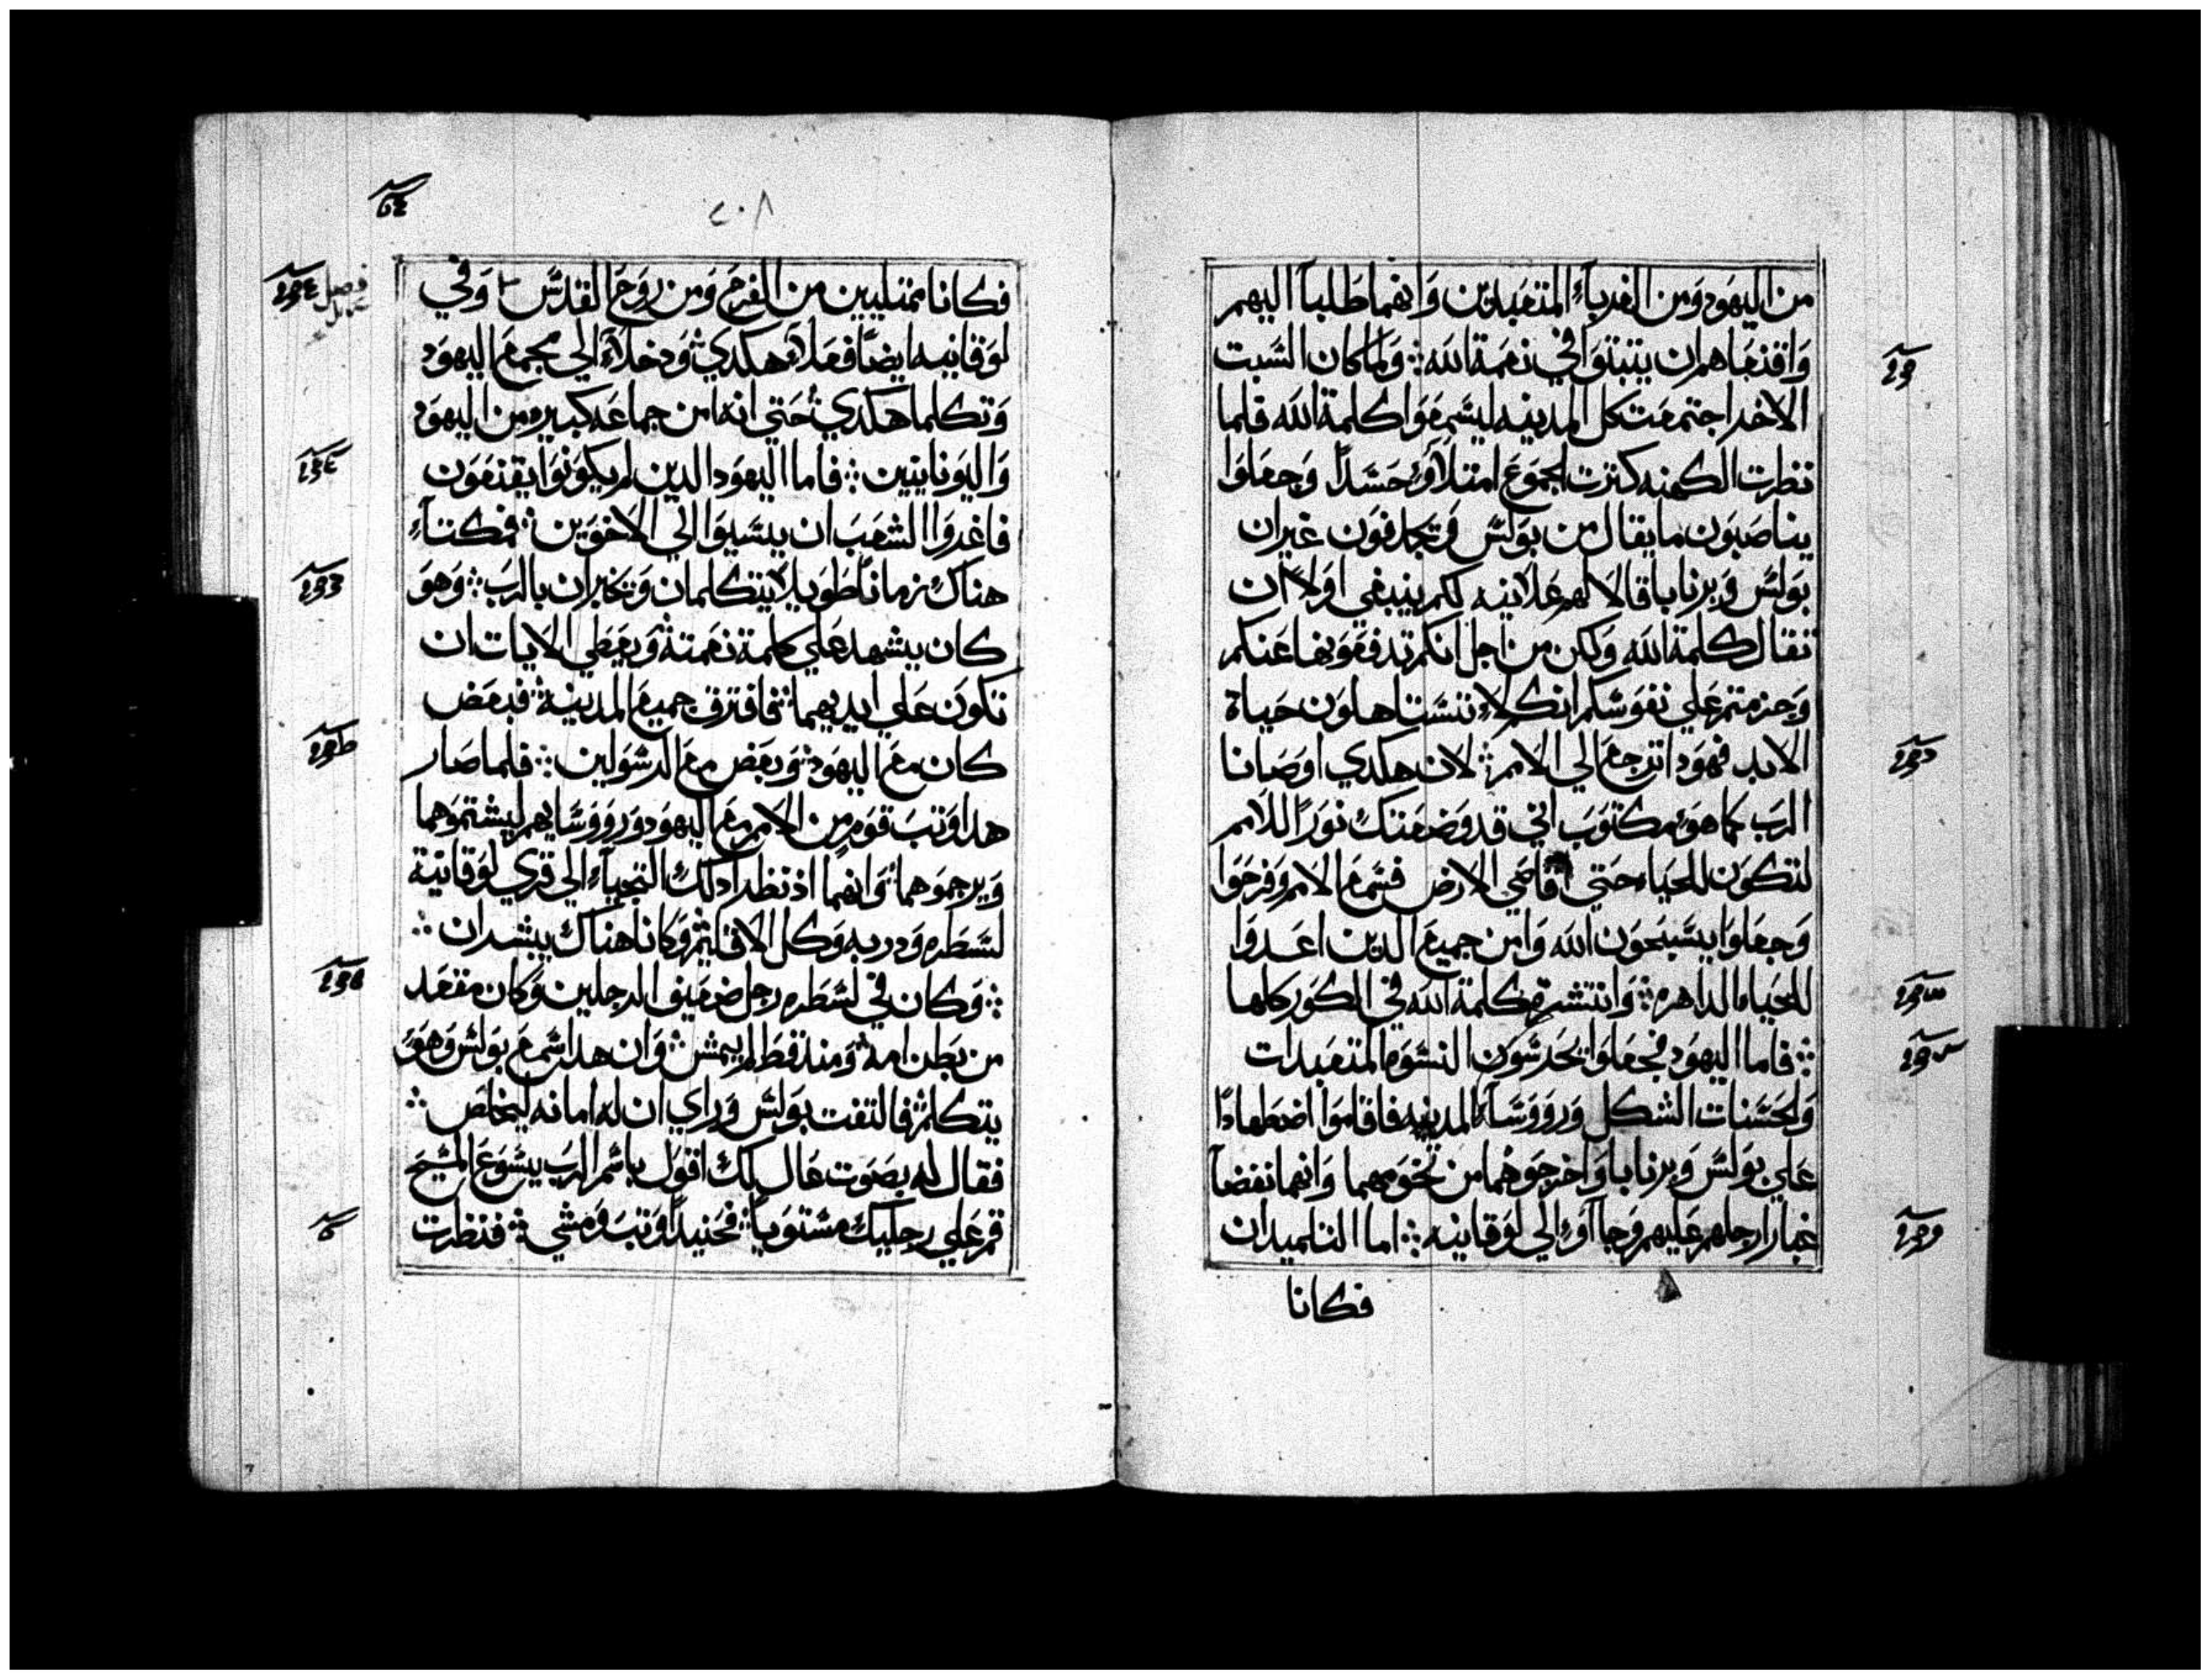 من اليهود ومن الغربآء المتعبدين وانهما طلبا اليهم
واقنعاهم ان يتبتوا في نعمة الله ۞ ولما كان السبت
الاخر اجتمعت كل المدينه ليسمعوا كلمة الله فلما
نظرت الكهنه كترت الجموع امتلاوا حسدًا وجعلوا
يناصبون ما يقال من بولس ويجدفون غير ان
بولس وبرنابا قالا لهم علانيه لكم ينبغي اولاً ان
تقال كلمة الله ولكن من اجل انكم تدفعونها عنكم
وجزمتم علي نفوسكم انكم لا تستاهلون حياة
الابد فهودا نرجع الي الامم ۞ لان هكدي اوصانا
الرب كما هو مكتوب اني قد وضعتك نورًا للامم
لتكون للحياه حتي اقاصي الارض فسمع الامم وفرحوا
وجعلوا يسبحون الله وامن جميع الدين اعدوا
للحياه الداهره ۞ وانتشرة كلمة الله في الكور كلها
۞ فاما اليهود فجعلوا يحرسون النسوه المتعبدات
والحسنات الشكل وروؤسآء المدينه فاقاموا اضطهادًا
علي بولس وبرنابا واخرجوهما من تخومهما وانهما نفضا
غبار ارجلهم عليهم وجاآوا الي لوقانيه ۞ اما التلميدان
فكانا
٢٠٨
فكانا ممتليين من الفرح ومن روح القدس وفي
لوقانيه ايضًا فعلا هكدي ودخلا الي مجمع اليهود
وتكلما هكدي حتي انه امن جماعه كبيره من اليهود
واليونانيين ۞ فاما اليهود الدين لم يكونوا يقنعون
فاغروا الشعب ان يسيوا الي الاخوين ۞ فمكتآء
هناك زمانًا طويلا يتكلمان ويخبران بالرب ۞ وهو
كان يشهد علي كلمة نعمته ويعطي الايات ان
تكون علي ايديهما ۞ فافترق جميع المدينه ۞ فبعض
كان مع اليهود وبعض مع الرسولين ۞ فلما صار
هدا وتب قوم من الامم مع اليهود وروؤسايهم ليشتموهما
ويرجموهما ۞ وانهما اذ نظرا دلك التجيآء الي قري لوقانية
لسطره ودربه وكل الاقاليم وكانا هناك يبشران ۞
۞ وكان في لسطره رجل ضعيف الرجلين وكان مقعد
من بطن امه ومند قط لم يمش ۞ وان هدا سمع بولس وهو
يتكلم فالتفت بولس وراي ان له امانه ليخلص ۞
فقال له بصوت عال لك اقول باسم الرب يسوع المسيح
قم علي رجليك مستويًا ۞ فحنيدًا وتب ومشي ۞ فنظرت